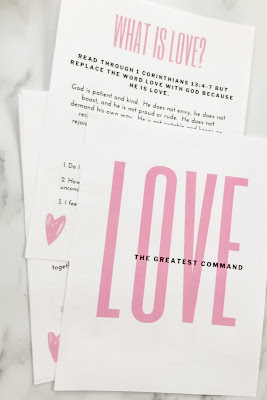 WHAT IS LOVE?
READ THROUGH 1 CORINTHIANS 13:4-7 BUT
REPLACE THE WORD LOVE WITH GOD BECAUSE
HE IS LOVE.
God is patient and kind. He does not envy, he does not
boast, and he is not proud or rude. He does not
demand his own way.
rejoi
1. Do
2. How
uncond
3. I fee
toge
LOVE
THE GREATEST COMMAND